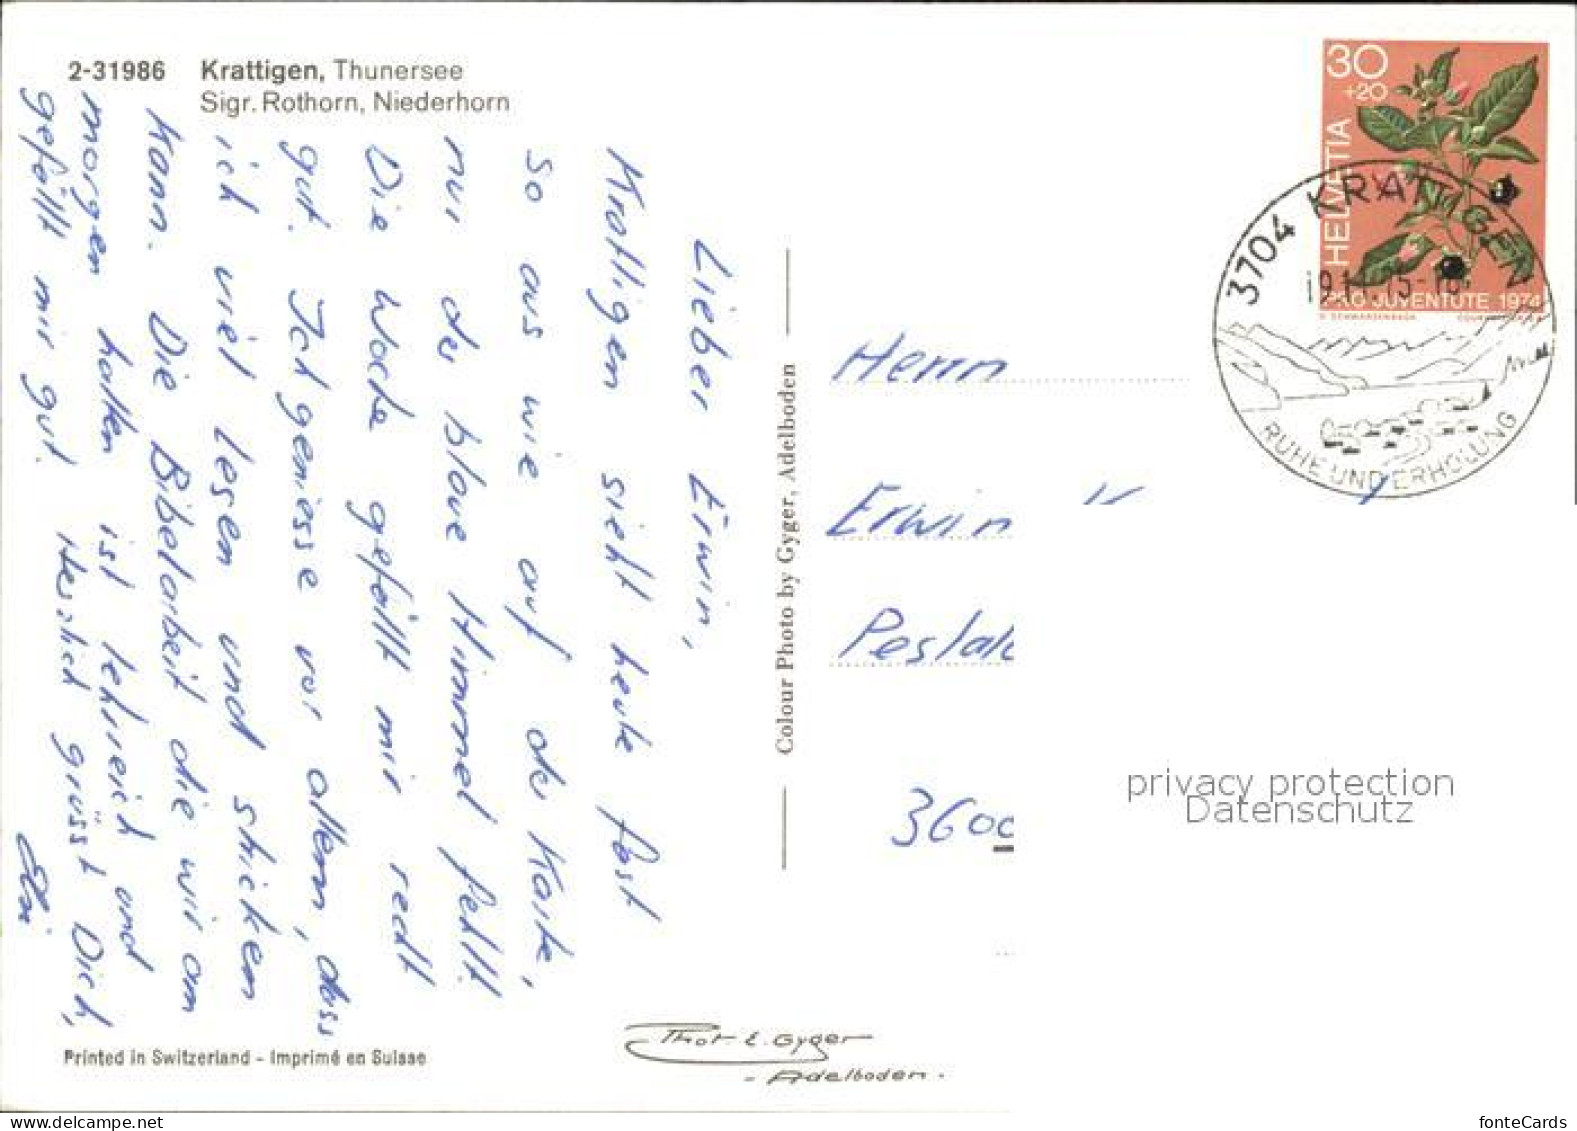 2-31986 Krattigen, Thunersee
Sigr. Rothorn, Niederhorn
Lieber Erwin,
Krattigen sieht heute fast
so aus wie auf der Karte,
nur der blaue Himmel fehlt.
Die Woche gefällt mir recht
gut. Ich geniesse vor allem, dass
ich viel lesen und sticken
kann. Die Bibelarbeit die wir am
morgen halten ist lehrreich und
gefällt mir gut. Herzlich grüsst Dich,
Elsi
Printed in Switzerland - Imprimé en Suisse
Colour Photo by Gyger, Adelboden
Phot. E. Gyger
- Adelboden -
30
+20
HELVETIA
PRO JUVENTUTE 1974
3704 KRATTIGEN
RUHE UND ERHOLUNG
Herrn
Erwin K
Pestal
3600
privacy protection
Datenschutz
www.delcampe.net
fonteCards